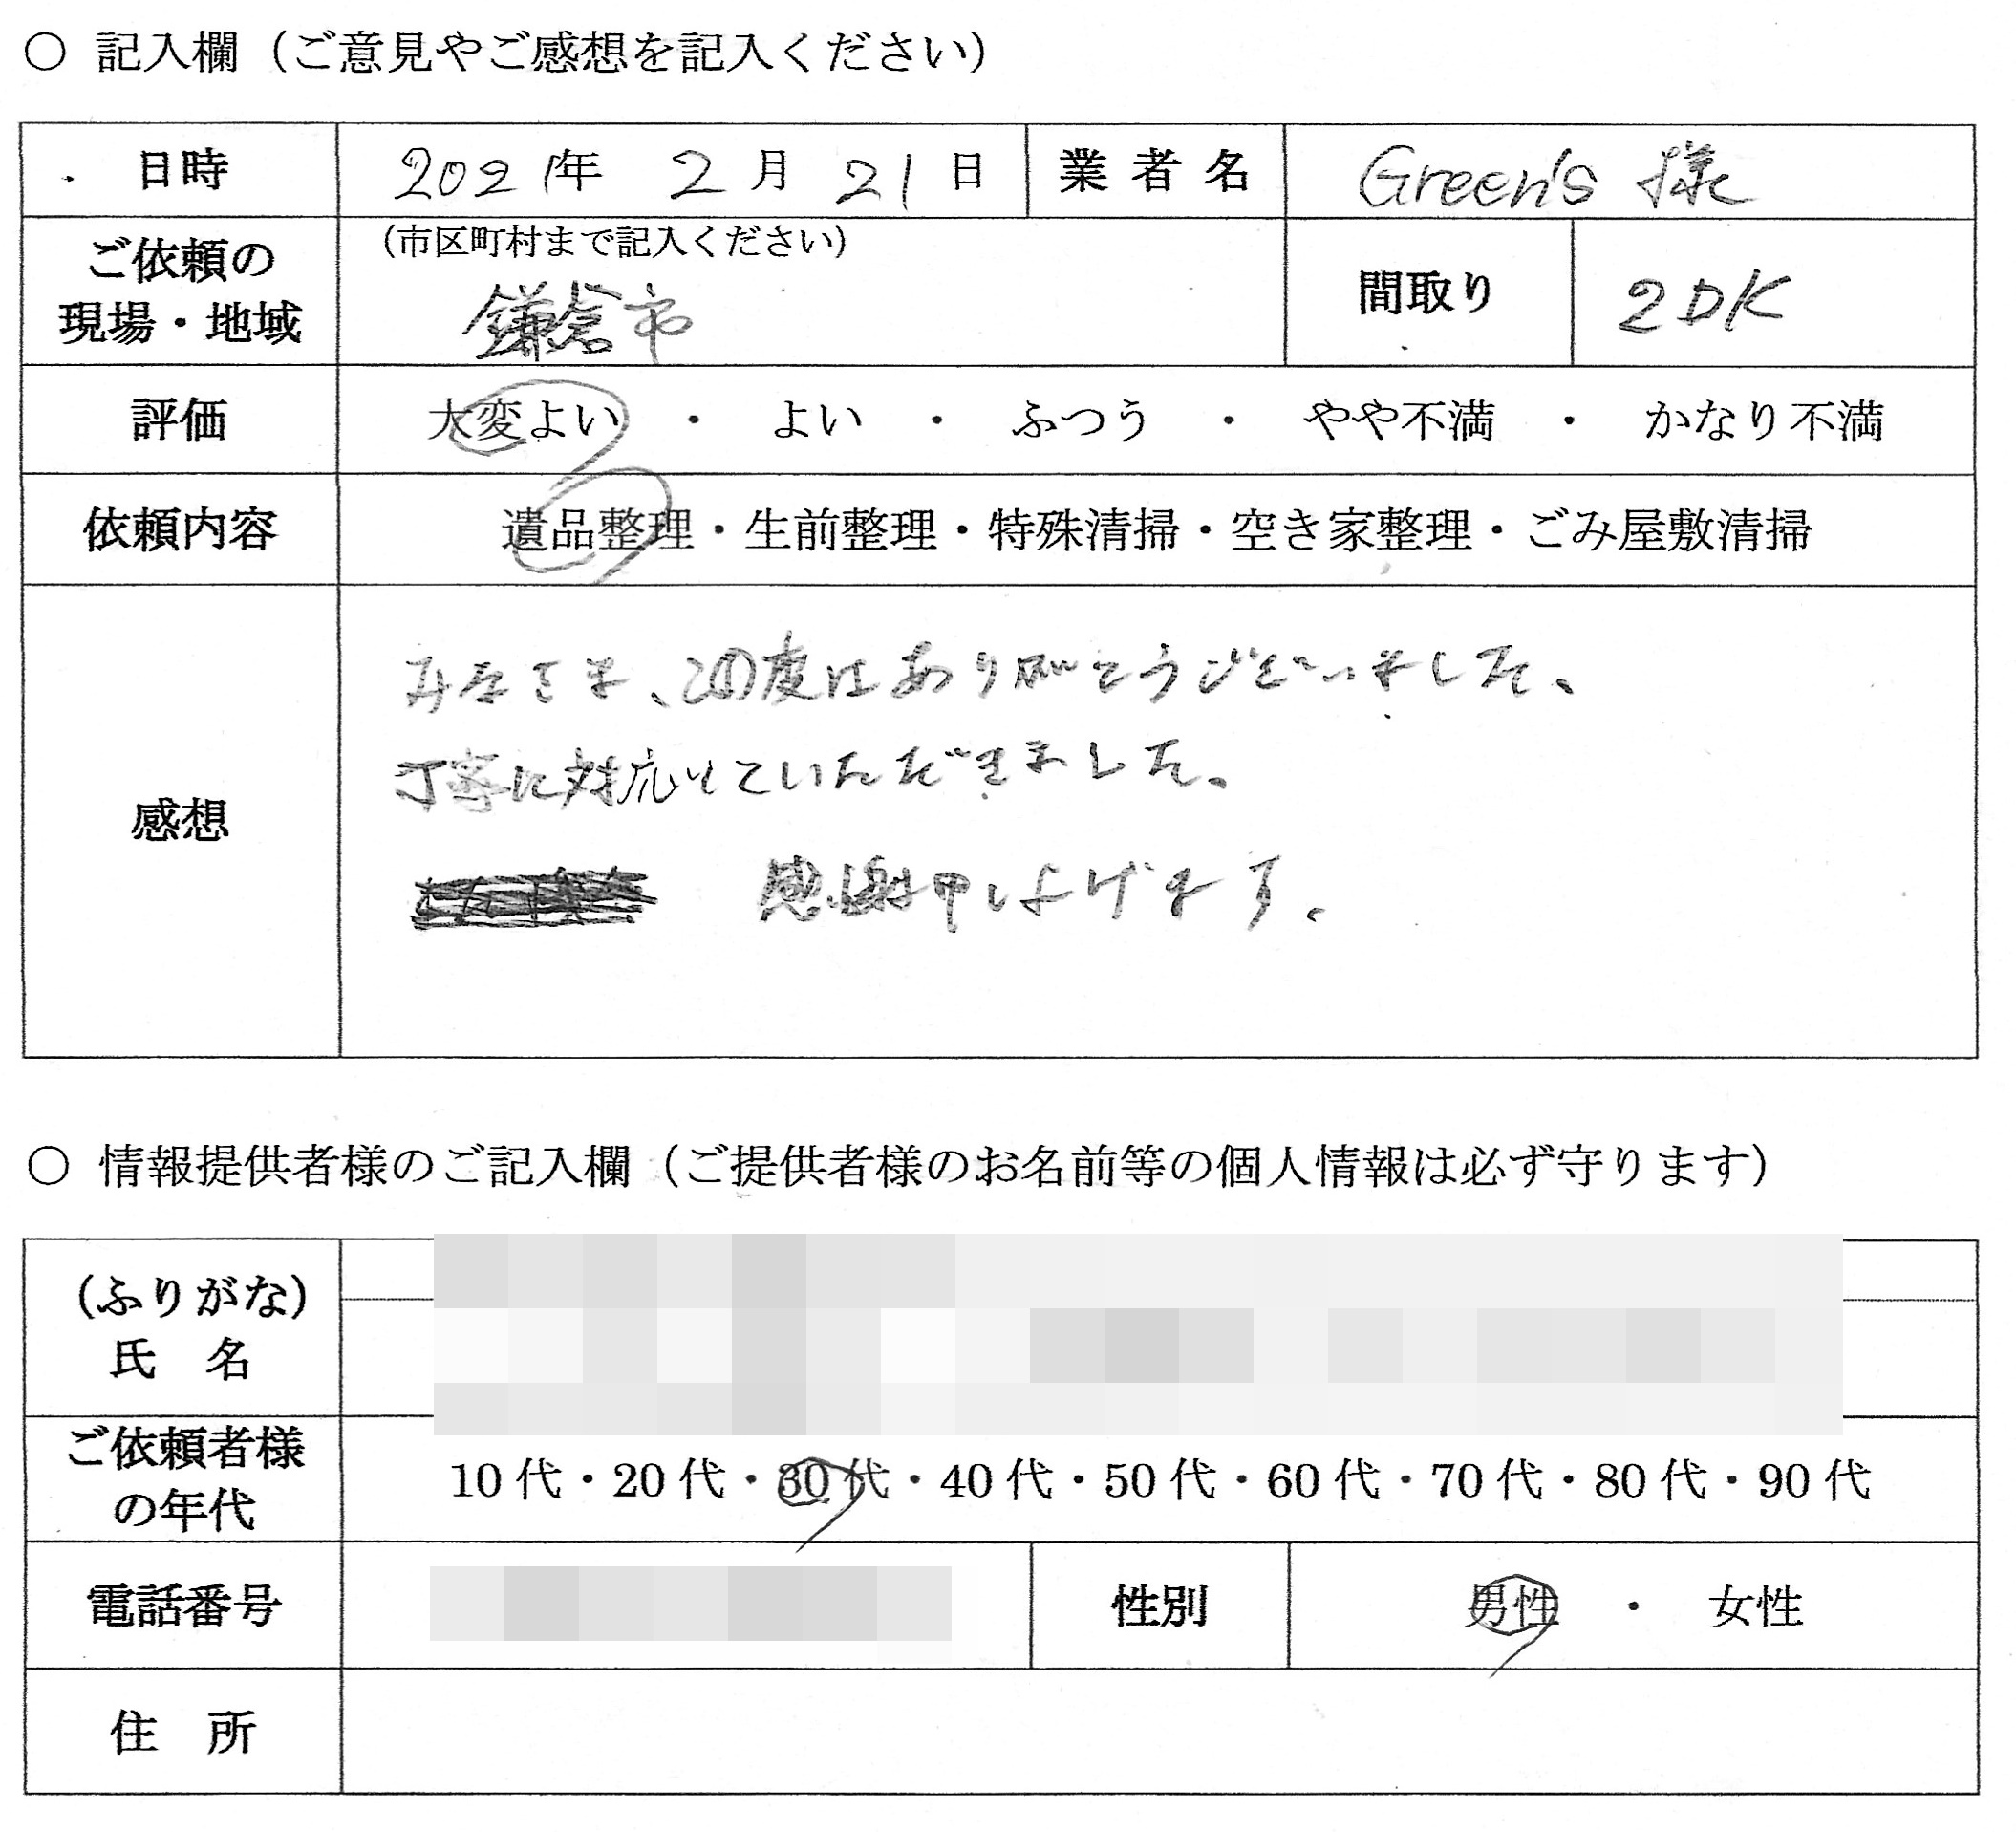 ○ 記入欄（ご意見やご感想を記入ください）
日時 2021年 2月 21日 業者名 Green's 様
ご依頼の現場・地域 （市区町村まで記入ください）
鎌倉市 間取り 2DK
評価 大変よい ・ よい ・ ふつう ・ やや不満 ・ かなり不満
依頼内容 遺品整理・生前整理・特殊清掃・空き家整理・ごみ屋敷清掃
感想
みなさま、この度はありがとうございました、
丁寧に対応していただきました。
感謝申し上げます。
○ 情報提供者様のご記入欄（ご提供者様のお名前等の個人情報は必ず守ります）
（ふりがな）
氏 名
ご依頼者様の年代 10代・20代・30代・40代・50代・60代・70代・80代・90代
電話番号 性別 男性 ・ 女性
住 所